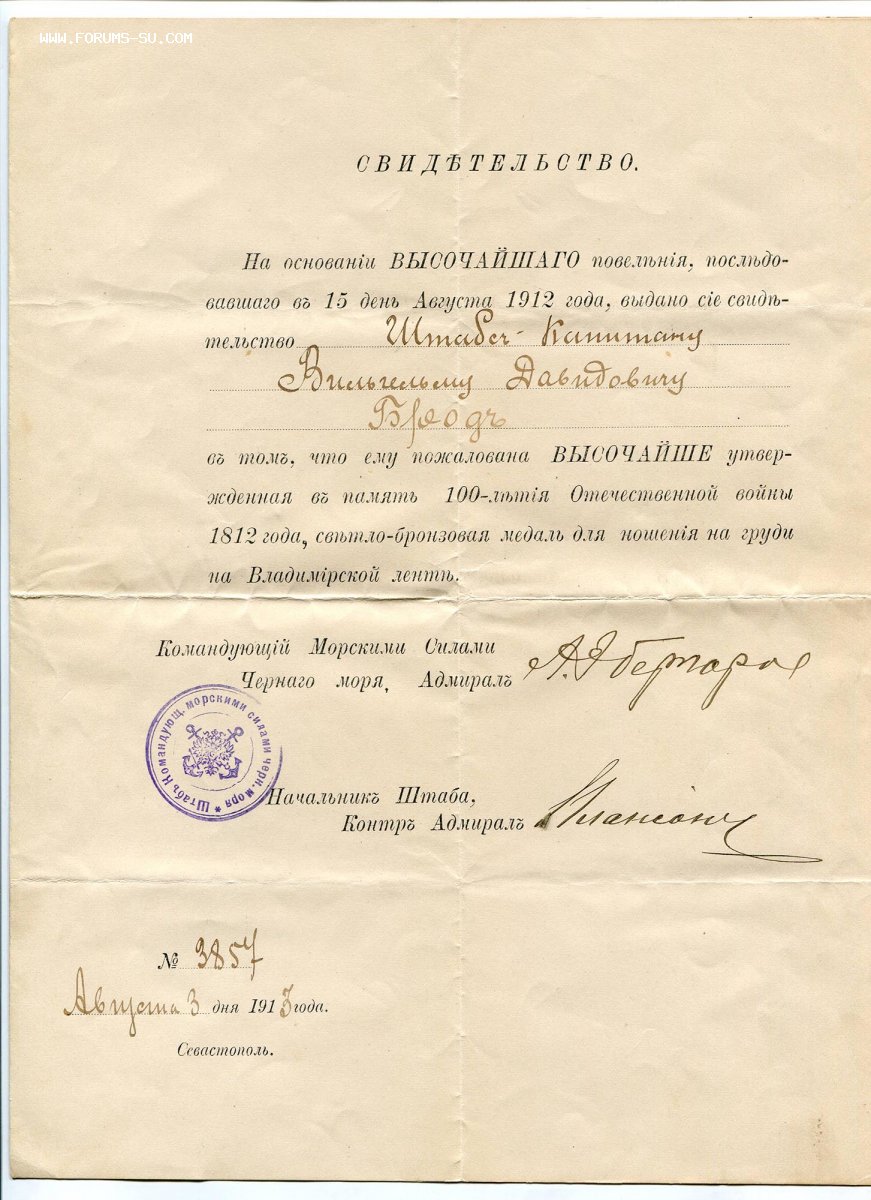 WWW.FORUMS-SU.COM
СВИДѢТЕЛЬСТВО.
На основаніи ВЫСОЧАЙШАГО повелѣнія, послѣдо-
вавшаго въ 15 день Августа 1912 года, выдано сіе свидѣ-
тельство Штабсъ-Капитану
Вильгельму Давидовичу
Бродъ
въ томъ, что ему пожалована ВЫСОЧАЙШЕ утвер-
жденная въ память 100-лѣтія Отечественной войны
1812 года, свѣтло-бронзовая медаль для ношенія на груди
на Владимірской лентѣ.
Командующій Морскими Силами
Чернаго моря, Адмиралъ А. Эбергардъ
Штабъ Командующ. морскими силами черн. моря
Начальникъ Штаба,
Контръ Адмиралъ Плансонъ
№ 3857
Августа 3 дня 1913 года.
Севастополь.